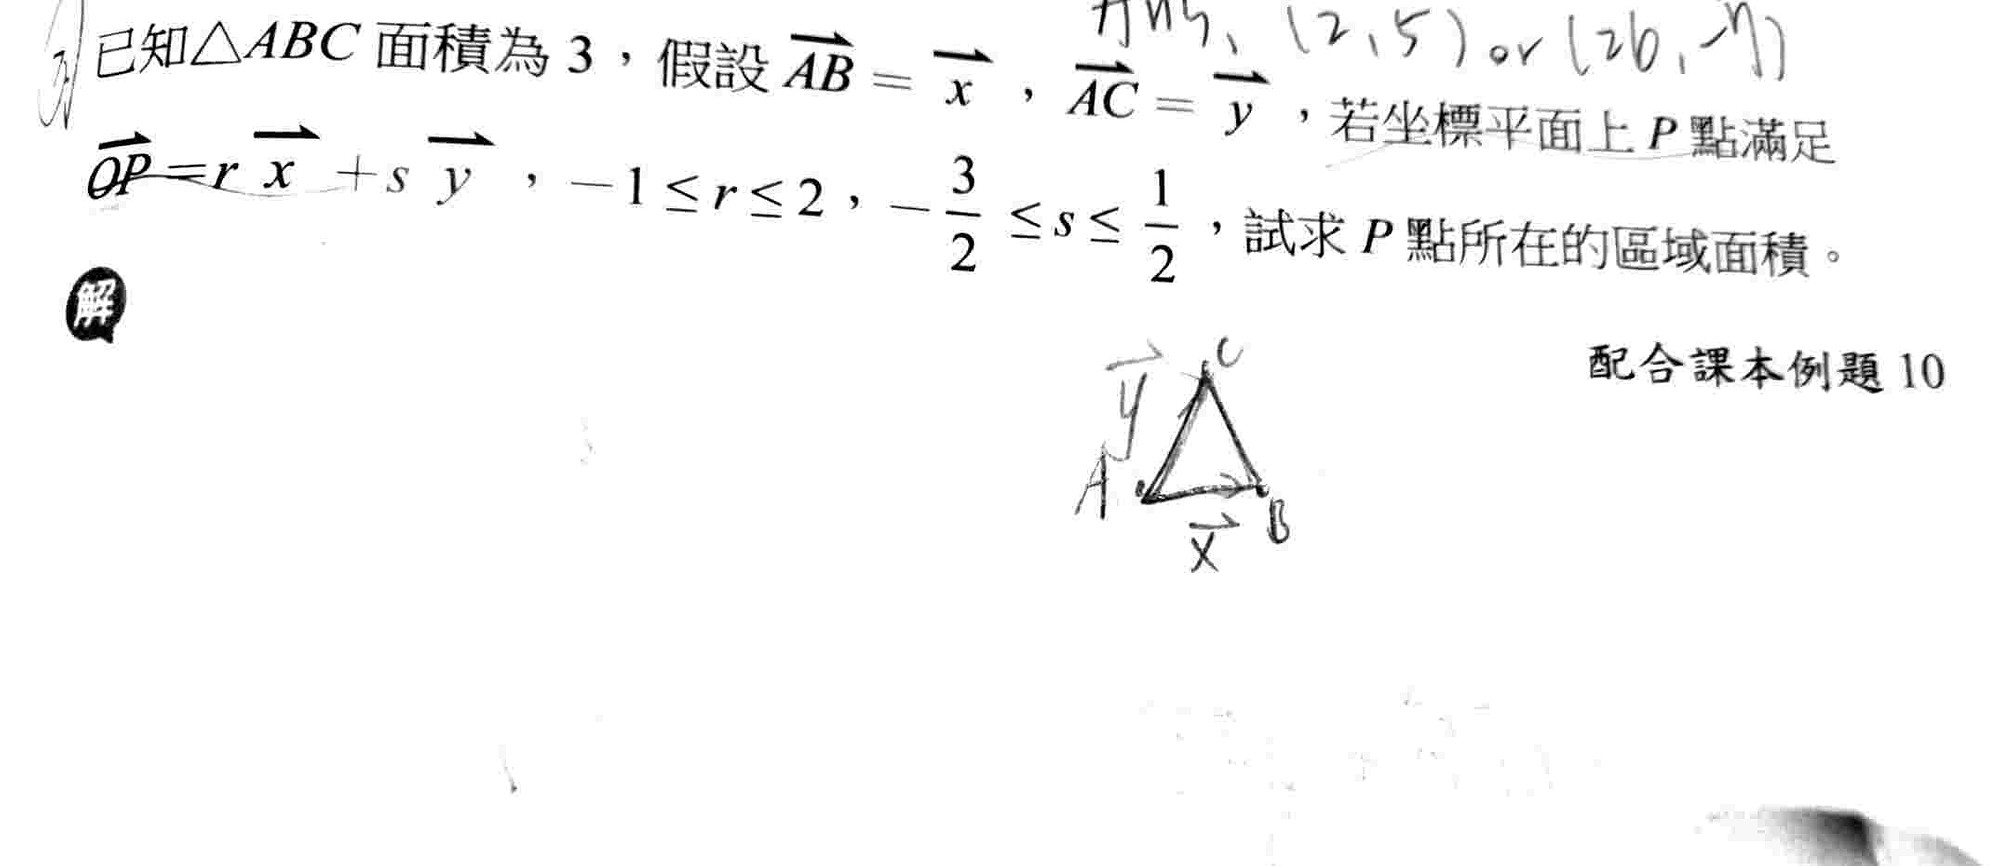 Ans, (2,5) or (26,-7)
已知△ABC 面積為 3，假設 $\overrightarrow{AB}=\overrightarrow{x}$，$\overrightarrow{AC}=\overrightarrow{y}$，若坐標平面上 P 點滿足
$\overrightarrow{OP}=r\overrightarrow{x}+s\overrightarrow{y}$，$-1\leq r\leq 2$，$-\frac{3}{2}\leq s\leq \frac{1}{2}$，試求 P 點所在的區域面積。
解
配合課本例題 10
$\overrightarrow{y}$ C
A
$\overrightarrow{x}$ B